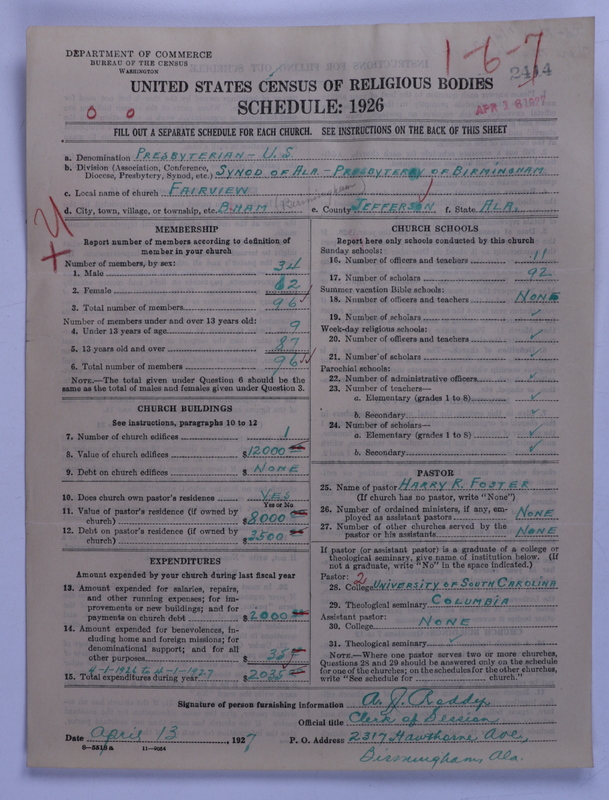 DEPARTMENT OF COMMERCE
BUREAU OF THE CENSUS
WASHINGTON
1-6-7
2414
APR 16 1927
UNITED STATES CENSUS OF RELIGIOUS BODIES
SCHEDULE: 1926
FILL OUT A SEPARATE SCHEDULE FOR EACH CHURCH. SEE INSTRUCTIONS ON THE BACK OF THIS SHEET
a. Denomination PRESBYTERIAN - U.S.
b. Division (Association, Conference, Diocese, Presbytery, Synod, etc.) SYNOD OF ALA - PRESBYTERY OF BIRMINGHAM
c. Local name of church FAIRVIEW
d. City, town, village, or township, etc. B-HAM (Birmingham) e. County JEFFERSON f. State ALA.
MEMBERSHIP
Report number of members according to definition of
member in your church
Number of members, by sex:
1. Male 34
2. Female 62
3. Total number of members 96
Number of members under and over 13 years old:
4. Under 13 years of age 9
5. 13 years old and over 87
6. Total number of members 96
NOTE.—The total given under Question 6 should be the
same as the total of males and females given under Question 3.
CHURCH BUILDINGS
See instructions, paragraphs 10 to 12
7. Number of church edifices 1
8. Value of church edifices $12000
9. Debt on church edifices $ NONE
10. Does church own pastor's residence YES
Yes or No
11. Value of pastor's residence (if owned by
church) $8000
12. Debt on pastor's residence (if owned by
church) $3500
EXPENDITURES
Amount expended by your church during last fiscal year
13. Amount expended for salaries, repairs,
and other running expenses; for im-
provements or new buildings; and for
payments on church debt $2000
14. Amount expended for benevolences, in-
cluding home and foreign missions; for
denominational support; and for all
other purposes $35
4-1-1926 to 4-1-1927
15. Total expenditures during year $2035
CHURCH SCHOOLS
Report here only schools conducted by this church
Sunday schools:
16. Number of officers and teachers 11
17. Number of scholars 92
Summer vacation Bible schools:
18. Number of officers and teachers NONE
19. Number of scholars
Week-day religious schools:
20. Number of officers and teachers
21. Number of scholars
Parochial schools:
22. Number of administrative officers
23. Number of teachers—
a. Elementary (grades 1 to 8)
b. Secondary
24. Number of scholars—
a. Elementary (grades 1 to 8)
b. Secondary
PASTOR
25. Name of pastor HARRY R. FOSTER
(If church has no pastor, write "None")
26. Number of ordained ministers, if any, em-
ployed as assistant pastors NONE
27. Number of other churches served by the
pastor or his assistants NONE
If pastor (or assistant pastor) is a graduate of a college or
theological seminary, give name of institution below. (If
not a graduate, write "No" in the space indicated.)
Pastor: 2
28. College UNIVERSITY OF SOUTH CAROLINA
29. Theological seminary COLUMBIA
Assistant pastor:
30. College NONE
31. Theological seminary
NOTE.—Where one pastor serves two or more churches,
Questions 28 and 29 should be answered only on the schedule
for one of the churches; on the schedules for the other churches,
write "See schedule for church."
Signature of person furnishing information A. J. Reddy
Official title Clerk of Session
Date April 13, 1927 P. O. Address 2317 Hawthorne Ave,
Birmingham, Ala.
8-5518a 11-9034